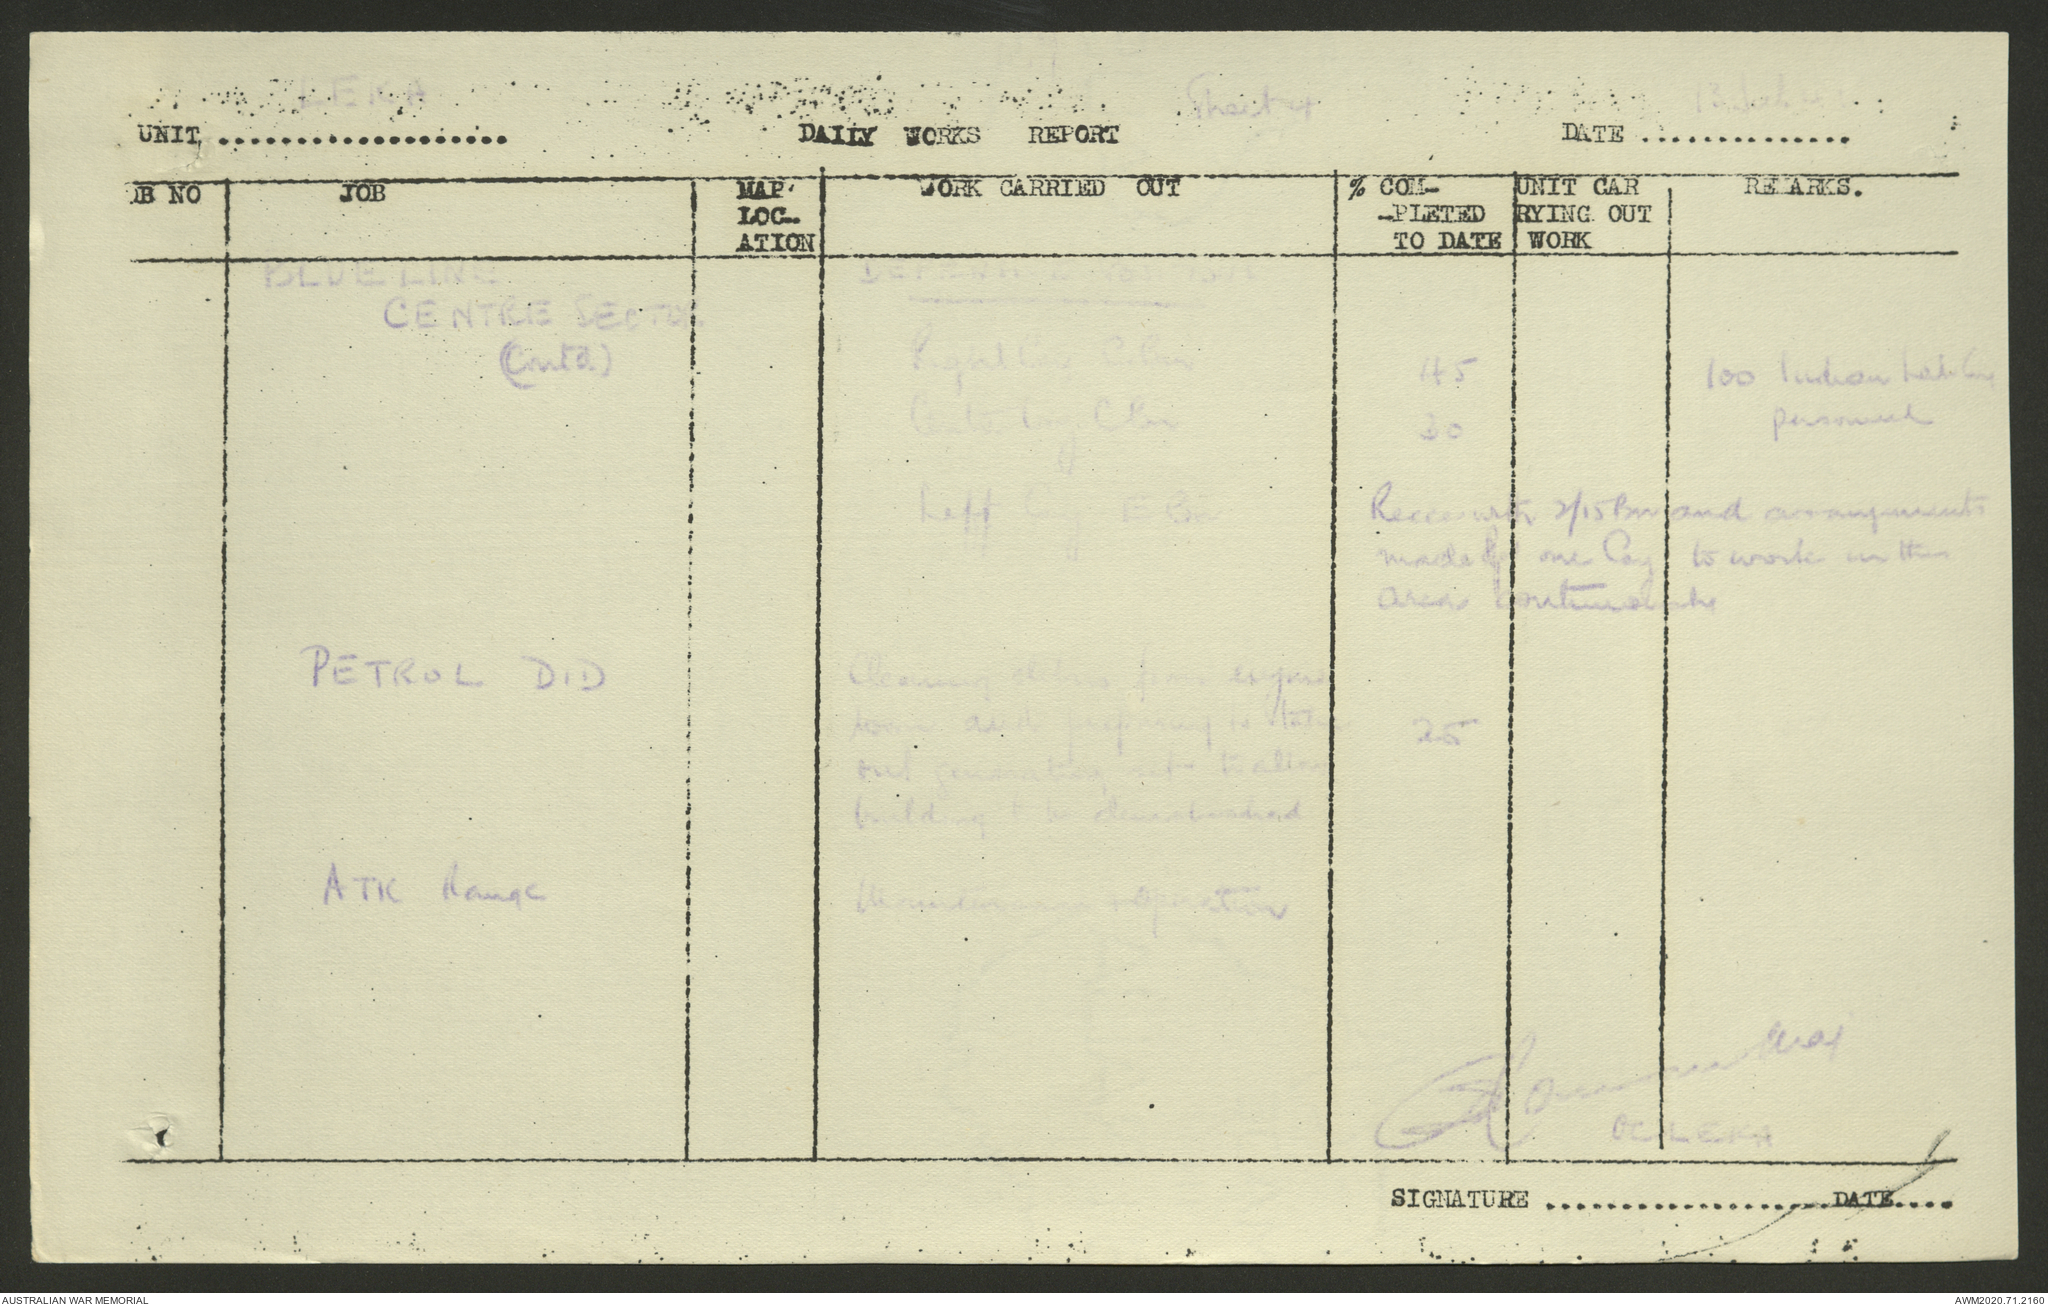 LEKA
Sheet 4
UNIT ................... DAILY WORKS REPORT DATE ..............
OB NO JOB MAP LOC- ATION WORK CARRIED OUT % COM- -PLETED TO DATE UNIT CAR RYING OUT WORK REMARKS.
BLUE LINE
CENTRE SECTOR
(Contd)
45 100 Indian
Centre Coy C Bn 30 personnel
Left Coy E Bn
Recce with 2/15 Bn and arrangements
made for one Coy to work in this
area continuously
PETROL DID Cleaning debris from engine
room and preparing to
25
generating set to allow
building to be demolished
ATK Range Maintenance & operation
Maj
OC LEKA
SIGNATURE ...................DATE....
AUSTRALIAN WAR MEMORIAL AWM2020.71.2160